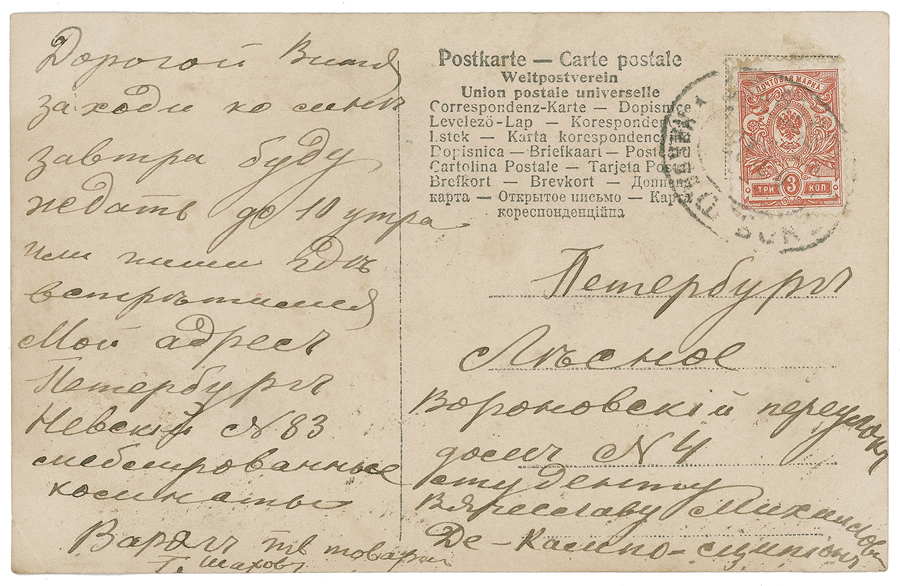 Дорогой Витя
заходи ко мнѣ
завтра буду
ждать до 10 утра
или пиши гдѣ
встрѣтимся
Мой адресъ
Петербургъ
Невскій № 83
меблированные
комнаты
товари
Postkarte — Carte postale
Weltpostverein
Union postale universelle
Correspondenz-Karte — Dopisnice
Levelező-Lap — Korespondenc
Lstek — Karta korespondenc
Dopisnica — Briefkaart — Poste
Cartolina Postale — Tarjeta Po
Brefkort — Brevkort — Допис
карта — Открытое письмо — Карта
кореспонденційна
ПОЧТОВАЯ МАРКА
ТРИ 3 КОП
Петербургъ
Лѣсное
Вороновскій переулокъ
домъ № 4
студенту
Михайлови